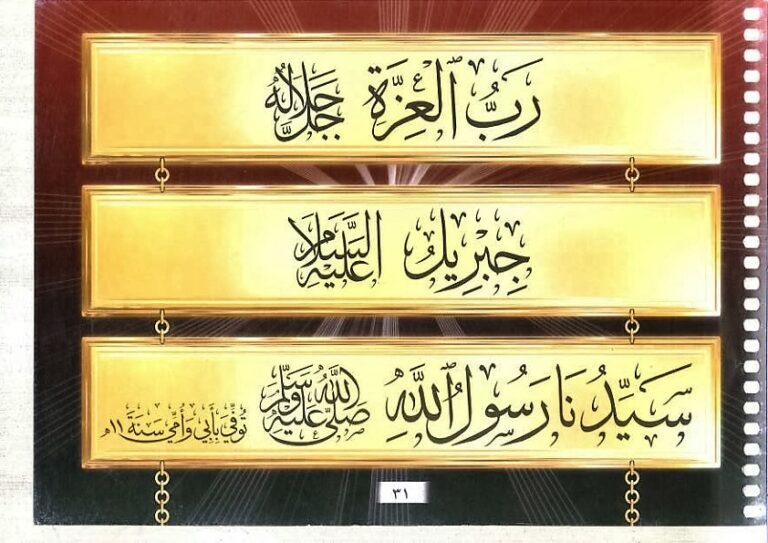 رَبُّ ٱلْعِزَّةِ جَلَّ جَلَالُهُ
جِبْرِيلُ عَلَيْهِ السَّلَامُ
سَيِّدُنَا رَسُولُ ٱللَّهِ صَلَّى اللَّهُ عَلَيْهِ وَسَلَّمَ تُوُفِّيَ بِأَبِي وَأُمِّي سَنَةَ ١١هـ
٣١